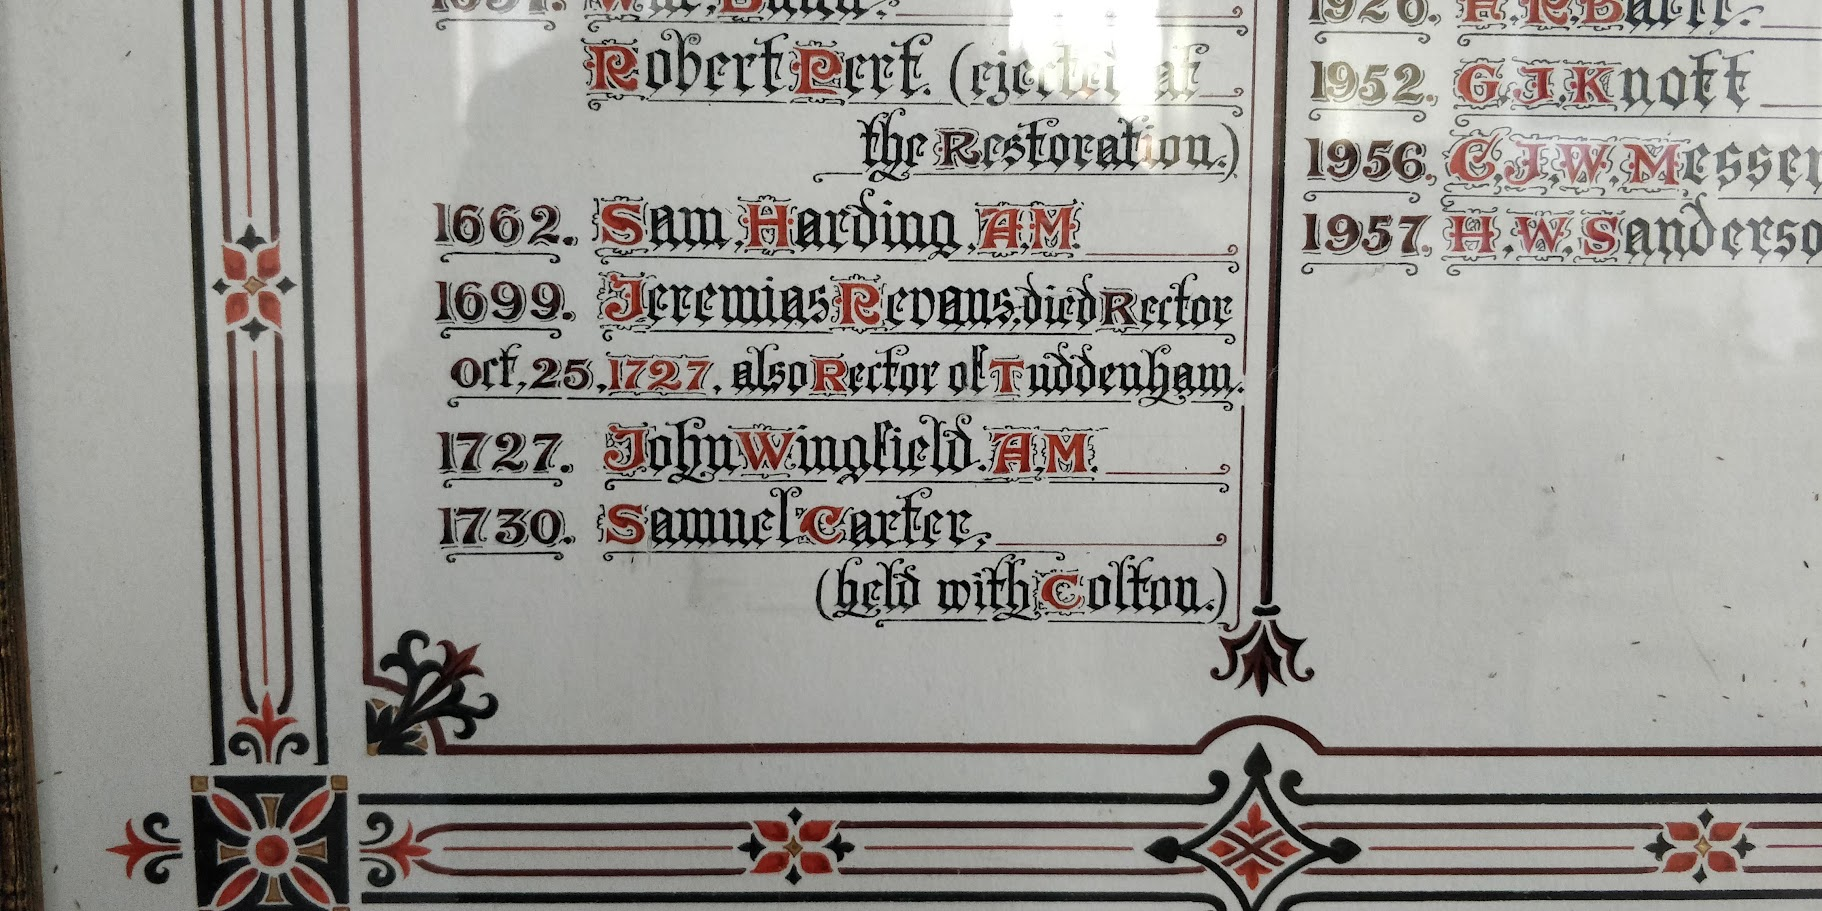 Robert Pert. (ejected at
the Restoration.)
1662. Sam. Harding. A.M.
1699. Jeremias Revans, died Rector
Oct. 25, 1727, also Rector of Tuddenham.
1727. John Wingfield. A.M.
1730. Samuel Carter,
(held with Colton.)
1926.
1952. G.J. Knott
1956. C.J.W. Messer
1957. H.W. Sanderso